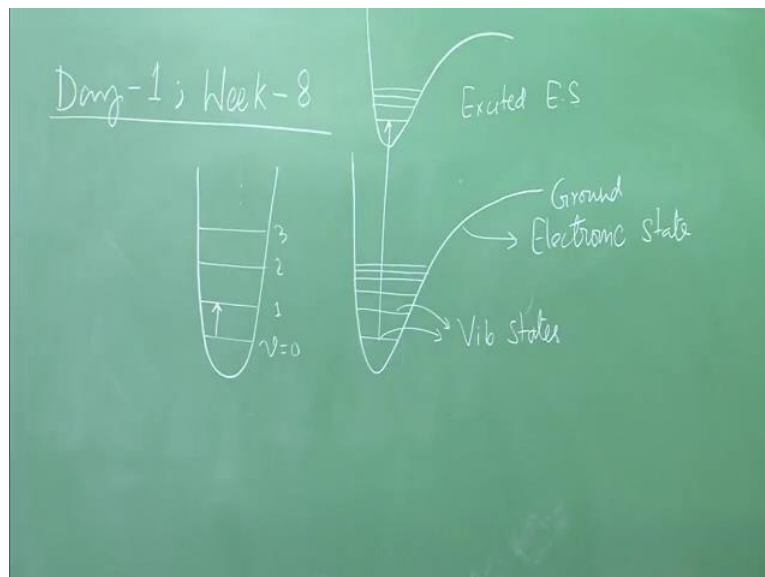 Day-1; Week-8
Excited E.S
Ground
Electronic State
3
2
1
v=0
Vib States